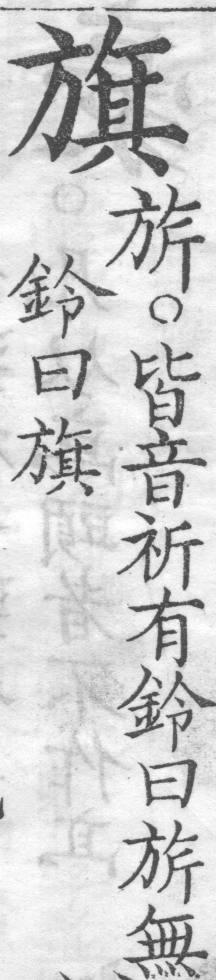 旗
旂。皆音祈有鈴曰旂無
鈴曰旗